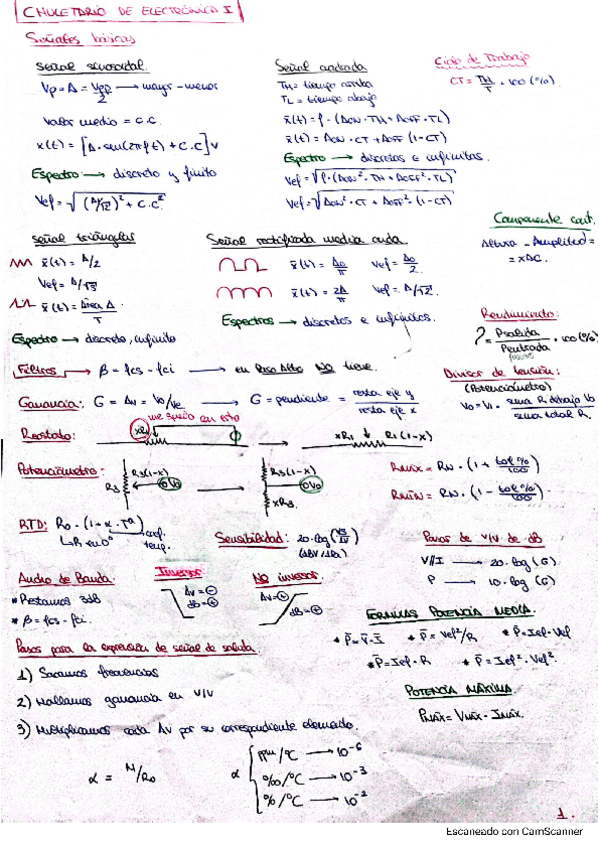 CHULETARIO DE ELECTRÓNICA I
Señales básicas
Señal sinusoidal.
Vp = A = Vpp/2 → mayor - menor
Valor medio = C.C.
x(t) = [A · sen(2πft) + C.C]v
Espectro → discreto y finito
Vef = √((A/√2)² + C.C²)
Señal cuadrada
TH = tiempo arriba
TL = tiempo abajo
x̄(t) = f · (AON · TH + AOFF · TL)
x̄(t) = AON · CT + AOFF (1-CT)
Espectro → discretos e infinitos.
Vef = √(f · (AON² · TH + AOFF² · TL))
Vef = √(AON² · CT + AOFF² (1-CT))
Ciclo de Trabajo
CT = TH/T · 100 (%).
Componente cont.
Altura - Amplitud =
= xDC.
Señal triangular
x̄(t) = A/2
Vef = A/√3
x̄(t) = Área Δ / T
Espectro → discreto, infinito
Señal rectificada media onda.
x̄(t) = A0/π Vef = A0/2
x̄(t) = 2A/π Vef = A/√2
Espectros → discretos e infinitos.
Rendimiento:
η = Psalida/Pentrada · 100 (%)
Filtros → β = fcs - fci → en Paso Alto NO tiene.
Ganancia: G = Av = Vo/Ve → G = pendiente = resta eje y / resta eje x
Divisor de tensión:
(Potenciómetro)
Vo = Vi · suma R debajo Vo / suma total R.
Reostato:
xR1 R1(1-x)
Potenciómetro:
R3(1-x)
R3
Vo
R3(1-x)
Vo
xR3.
Rmáx = RN · (1 + tol%/100)
RMIN = RN · (1 - tol%/100)
RTD: R0 · (1 + α · Tª)
coef. temp.
Sensibilidad: 20 · log
Pasos de v/v de dB
V//I → 20 · log (G)
P → 10 · log (G)
Ancho de Banda:
* Restamos 3dB
* β = fcs - fci
Inversor
Av = ⊖
dB = ⊕
NO inversor.
Av = ⊕
dB = ⊕
FÓRMULAS POTENCIA MEDIA.
* P̄ = V̄ · Ī * P̄ = Vef²/R * P̄ = Ief · Vef
* P̄ = Ief · R * P̄ = Ief² · Vef².
Pasos para la expresión de señal de salida
1) Sacamos frecuencias
2) Hallamos ganancia en v/v
3) Multiplicamos cada Av por su correspondiente elemento.
POTENCIA MÁXIMA
Pmáx = Vmáx · Imáx.
α = M/R0
α
ppm/°C → 10⁻⁶
‰/°C → 10⁻³
%/°C → 10⁻²
1.
Escaneado con CamScanner